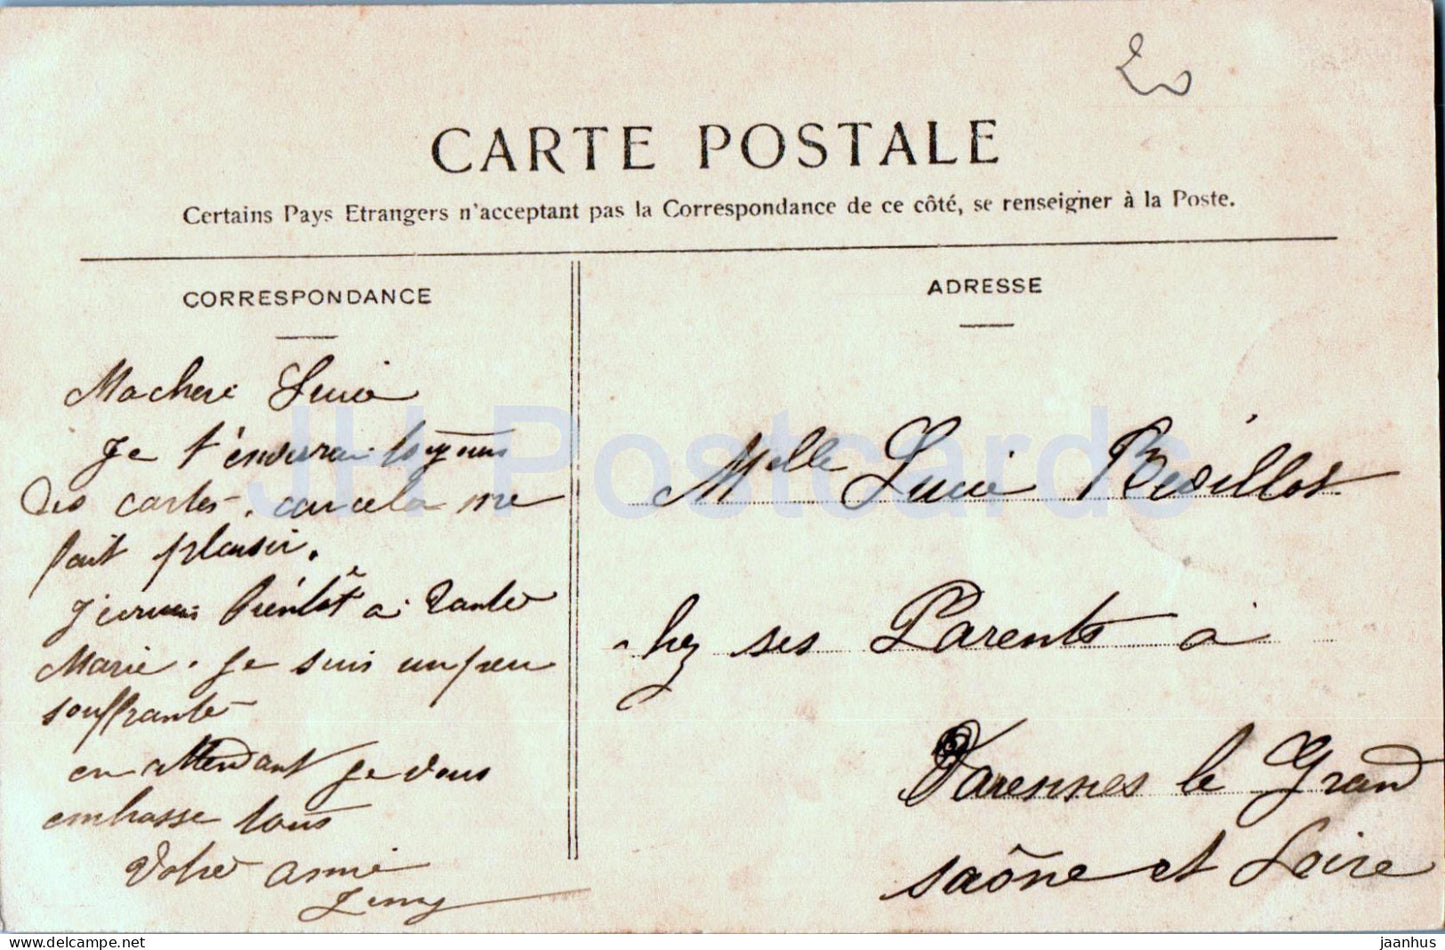 CARTE POSTALE
Certains Pays Etrangers n'acceptant pas la Correspondance de ce côté, se renseigner à la Poste.
CORRESPONDANCE
Ma chere Lucie
Je t'enverrai toujours
des cartes, car cela me
fait plaisir.
J'ecrirai bientôt a Tante
Marie. Je suis un peu
souffrante
en attendant je vous
embrasse tous
Votre amie
ADRESSE
Mlle Lucie
chez ses Parents à
Varennes le Grand
saône et Loire
JH Postcards
delcampe.net
jaanhus